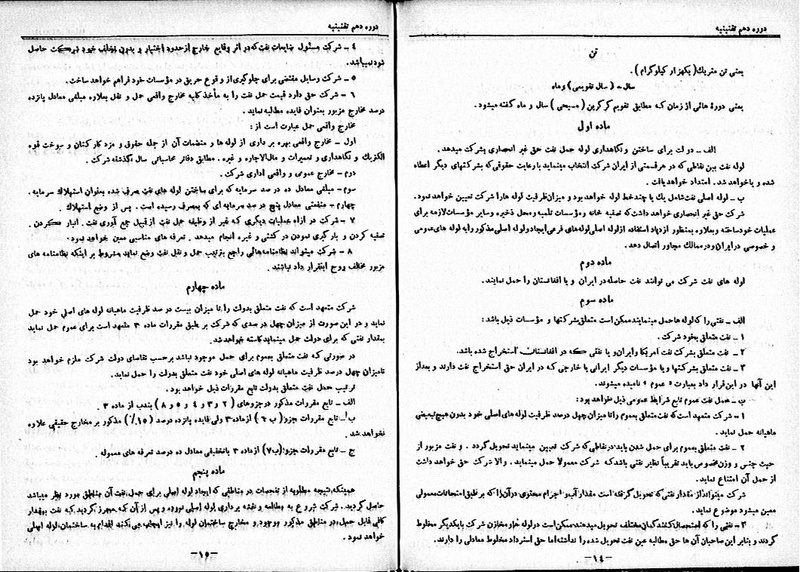 دوره دهم تقنینیه
تن
یعنی تن متریك (یكهزار كیلوگرام) .
سال - (سال تقویمی) و ماه
یعنی دورهٔ هائی از زمان كه مطابق تقویم گرگرین (مسیحی) سال و ماه گفته میشود .
ماده اول
الف - دولت برای ساختن و نگاهداری لوله حمل نفت حق غیر انحصاری بشركت میدهد .
لوله نفت بین نقاطی كه در هر قسمتی از ایران شركت انتخاب مینماید با رعایت حقوقی كه بشركتهای دیگر اعطاء
شده و یا خواهد شد . امتداد خواهد یافت .
ب - لوله اصلی نفت شامل یك یا چند خط لوله خواهد بود و میزان ظرفیت لوله ها را شركت تعیین خواهد نمود .
شركت حق غیر انحصاری خواهد داشت كه تصفیه خانه و مؤسسات تلمبه و محل ذخیره و سایر مؤسسات لازمه برای
عملیات خود ساخته و بعلاوه بمنظور ازدیاد استفاده از لوله اصلی لوله های فرعی ایجاد و لوله اصلی مذكور را به لوله های عمومی
و خصوصی در ایران و در ممالك مجاور اتصال دهد .
ماده دوم
لوله های نفت شركت می توانند نفت حاصله در ایران و یا افغانستان را حمل نمایند .
ماده سوم
الف - نفتی را كه لوله ها حمل مینمایند ممكن است متعلق بشركتها و مؤسسات ذیل باشد :
۱ - نفت متعلق بخود شركت .
۲ - نفت متعلق بشركت نفت امریكا و ایران و یا نفتی كه در افغانستان استخراج شده باشد .
۳ - نفت متعلق بشركتها و یا مؤسسات دیگر ایرانی یا خارجی كه در ایران حق استخراج نفت دارند و بعد از
این آنها در این قرار داد بعبارت « عموم » نامیده میشوند .
ب - حمل نفت عموم تابع شرایط عمومی ذیل خواهد بود :
۱ - شركت متعهد است كه نفت متعلق بعموم را تا میزان چهل درصد ظرفیت لوله های اصلی خود بدون هیچ تبعیضی
ماهیانه حمل نماید .
۲ - نفت متعلق بعموم برای حمل شدن باید در نقاطی كه شركت تعیین مینماید تحویل گردد . و نفت مزبور از
حیث جنس و وزن مخصوص باید تقریباً نظیر نفتی باشد كه شركت معمولا حمل مینماید . والا شركت حق خواهد داشت
از حمل آن امتناع نماید .
شركت میتواند از مقدار نفتی كه تحویل گرفته است مقدار آب و اجرام محتوی در آن را كه بر طبق امتحانات معمولی
معین میشود موضوع نماید .
۳ - نفتی را كه استحصال كنندگان مختلف تحویل میدهند ممكن است در لوله ها و مخازن شركت با یكدیگر مخلوط
گردند و بنابر این صاحبان آن ها حق مطالبه عین نفت تحویل شده را نداشته اما حق استرداد مخلوط معادلی را دارند .
- ۱٤ -
دوره دهم تقنینیه
٤ - شركت مسئول ضایعات نفت كه در اثر وقایع خارج از حدود اختیار و بدون تخلف خود شركت حاصل
شود نمیباشد .
۵ - شركت وسایل مقتضی برای جلوگیری از وقوع حریق در مؤسسات خود فراهم خواهد ساخت .
۶ - شركت حق دارد قیمت حمل نفت را به مأخذ كلیه مخارج واقعی حمل و نقل بعلاوه مبلغی معادل پانزده
درصد مخارج مزبور بعنوان فایده مطالبه نماید .
مخارج واقعی حمل عبارت است از :
اول - مخارج واقعی بهره برداری از لوله ها و منضمات آن از جمله حقوق و مزد كاركنان و سوخت قوه
الكتریك و نگاهداری و تعمیرات و مال الاجاره و غیره . مطابق دفاتر محاسباتی سال گذشته شركت .
دوم - مخارج عمومی و واقعی اداری شركت .
سوم - مبلغی معادل ده در صد سرمایه كه برای ساختن لوله های نفت بصرف شده بعنوان استهلاك سرمایه .
چهارم - منفعتی معادل پنج درصد سرمایه ای كه بمصرف رسیده است . پس از وضع استهلاك .
۷ - شركت در ازاء عملیات دیگری كه غیر از وظیفه حمل نفت از قبیل جمع آوری نفت . انبار كردن .
تصفیه كردن و بار گیری نمودن در كشتی و غیره انجام میدهد . تعرفه های متناسبی معین خواهد نمود .
۸ - شركت میتواند نظامنامه هائی راجع بترتیب حمل و نقل نفت وضع نماید مشروط بر اینكه نظامنامه های
مزبور مخالف روح اینقرار داد نباشند .
ماده چهارم
شركت متعهد است كه نفت متعلق بدولت را تا میزان بیست درصد ظرفیت ماهیانه لوله های اصلی خود حمل
نماید و در این صورت از میزان چهل درصدی كه شركت بر طبق مقررات ماده ۳ متعهد است برای عموم حمل نماید
بمقدار نفتی كه برای دولت حمل مینماید كاسته خواهد شد .
در صورتی كه نفت متعلق بعموم برای حمل موجود نباشد بر حسب تقاضای دولت شركت ملزم خواهد بود
تا میزان چهل درصد ظرفیت ماهیانه لوله های اصلی خود نفت متعلق بدولت را حمل نماید .
ترتیب حمل نفت متعلق بدولت تابع مقررات ذیل خواهد بود .
الف - تابع مقررات مذكور در جزوهای ( ۲ و ۳ و ٤ و ۵ و ۸ ) بند ب از ماده ۳ .
ب - تابع مقررات جزو ( ب ۶ ) از ماده ۳ ولی فایده پانزده درصد ( ٪۱۵ ) مذكور بر مخارج حقیقی علاوه
نخواهد شد .
ج - تابع مقررات جزو ( ب ۷ ) از ماده ۳ با تخفیفی معادل ده درصد تعرفه های معموله .
ماده پنجم
همینكه نتیجه مطلوبه از تفحصات در مناطقی كه ایجاد لوله اصلی برای حمل نفت آن مناطق مورد نظر میباشد
حاصل گردید . شركت شروع به مطالعه و نقشه برداری لوله اصلی نموده و پس از آن كه محرز گردید كه نفت بمقدار
كافی قابل حمل در مناطق مذكور موجود و مخارج ساختمان لوله را نیز ایجاب می كند اقدام به ساختمان لوله اصلی
خواهد نمود .
- ۱۵ -